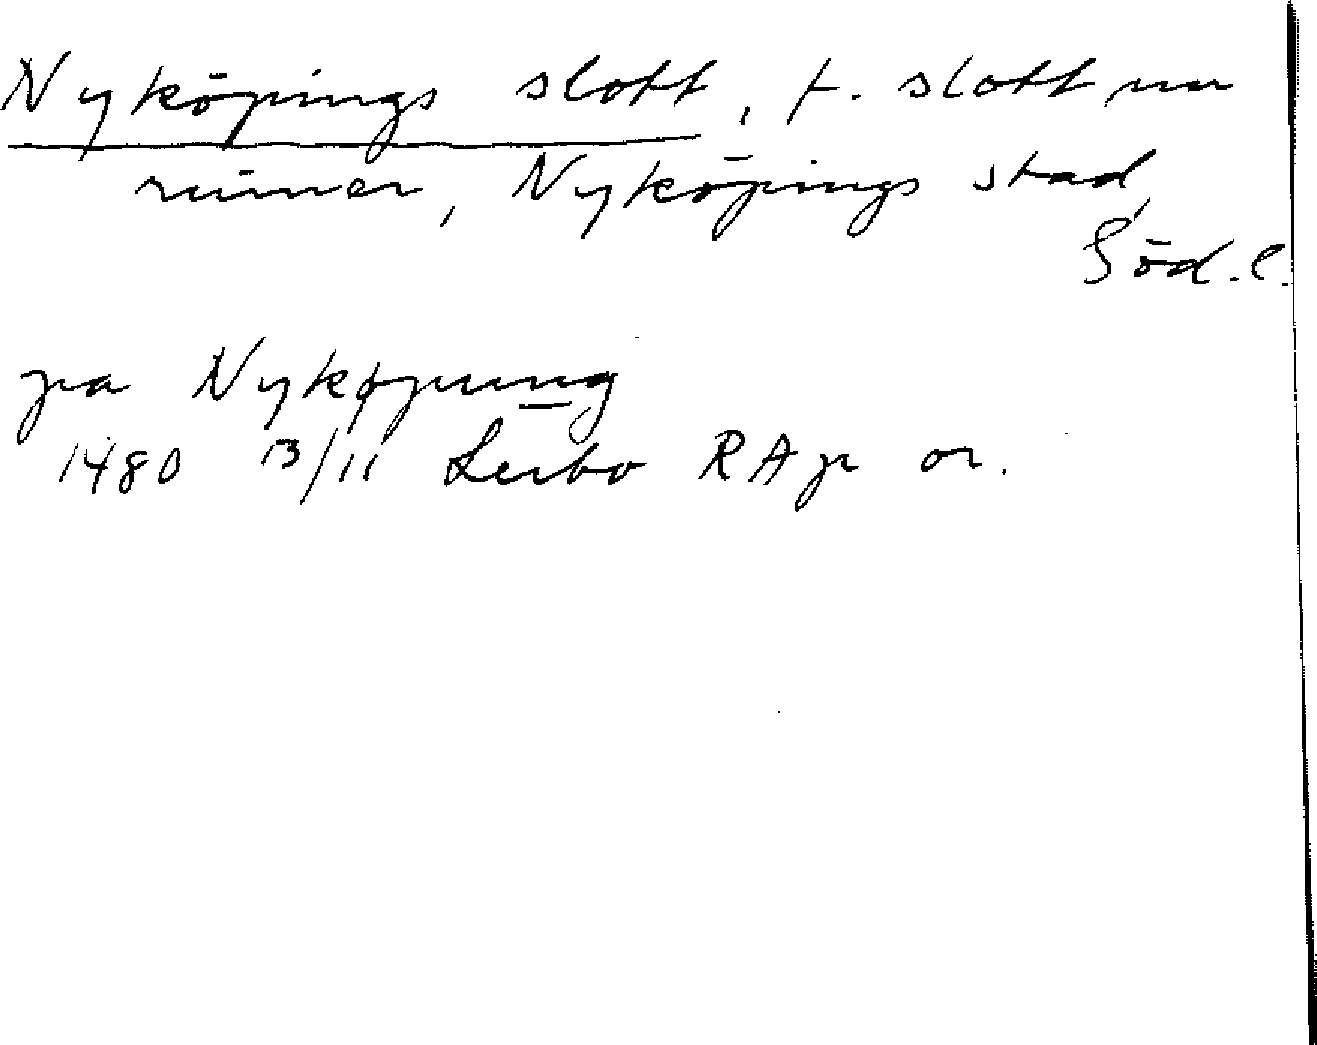 Nyköpings slott, f. slott, nu
ruiner, Nyköpings stad,
Söd. l.
pa Nykøpung
1480 13/11 Lerbo RAp or.